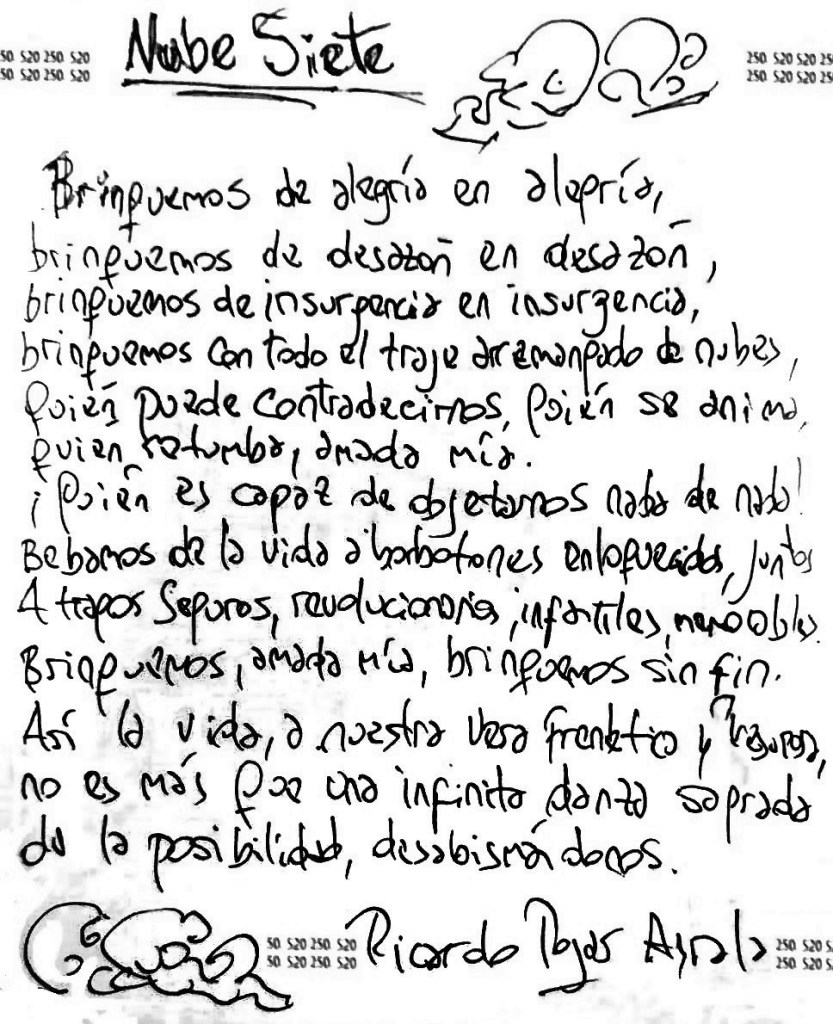 50 520 250 520
50 520 250 520
Nube Siete
250 520 520 25
250 520 520 25
Brinquemos de alegría en alegría,
brinquemos de desazón en desazón,
brinquemos de insurgencia en insurgencia,
brinquemos con todo el traje arremangado de nubes,
quién puede contradecirnos, quién se anima,
quien retumba, amada mía.
¡Quién es capaz de objetarnos nada de nada!
Bebamos de la vida a borbotones enloquecidos, juntos
4 trapos seguros, revolucionarios, infantiles,
Brinquemos, amada mía, brinquemos sin fin.
Así la vida, a nuestra vera y
no es más que una infinita danza sagrada
de la posibilidad, desabismándonos.
50 520 250 520
50 520 250 520
Ricardo Rojas Ayrala
250 520 5
250 520 5